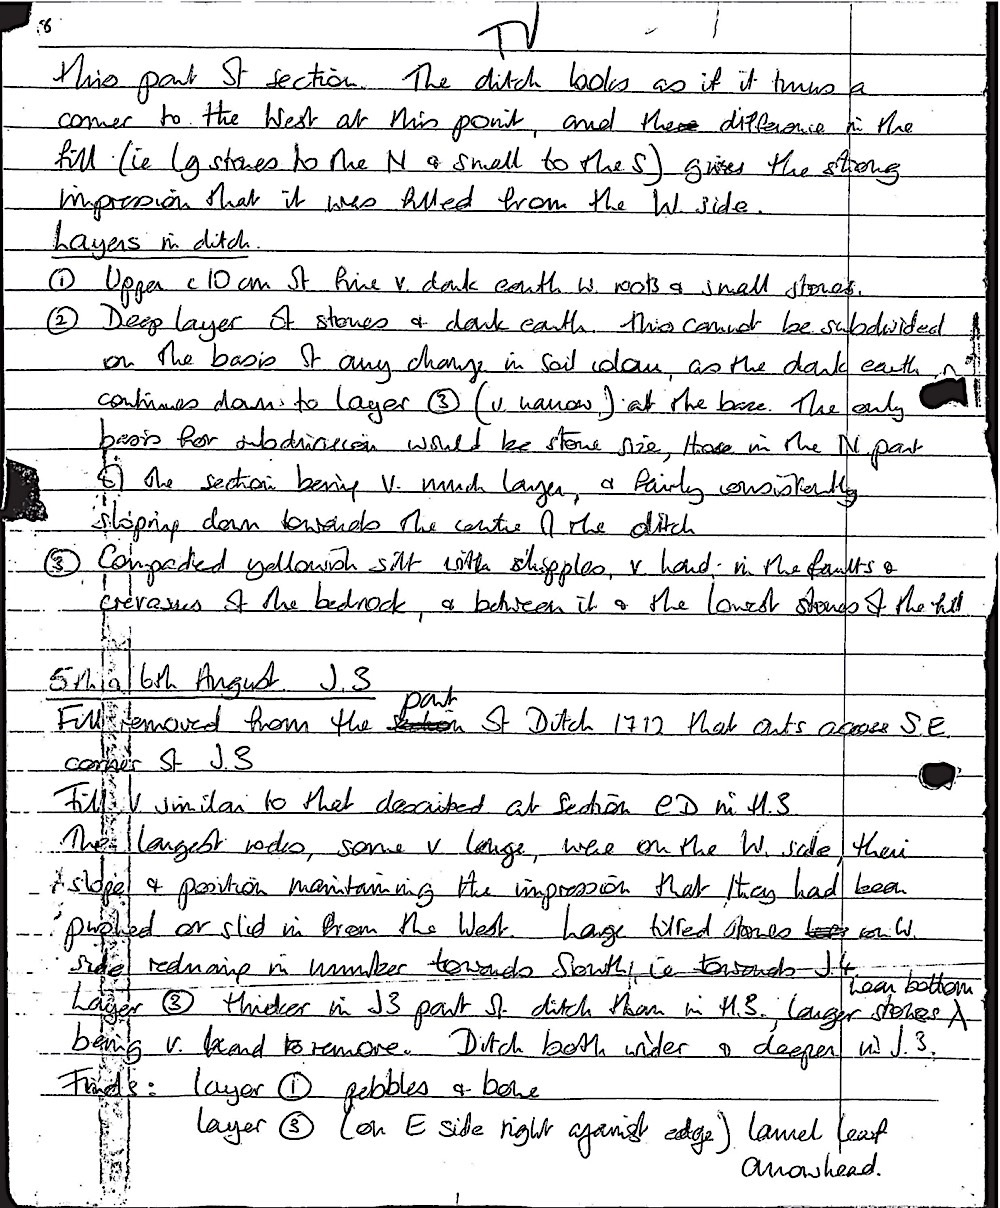 8
TV
this part of section. The ditch looks as if it turns a
corner to the West at this point, and these difference in the
fill (ie lg stones to the N & small to the S) gives the strong
impression that it was filled from the W. side.
Layers in ditch.
① Upper c 10 cm of fine v. dark earth w. roots & small stones.
② Deep layer of stones & dark earth. This cannot be subdivided
on the basis of any change in soil colour, as the dark earth
continues down to layer ③ (v. narrow) at the base. The only
basis for subdivision would be stone size, those in the N. part
of the section being v. much larger, & fairly consistently
sloping down towards the centre of the ditch
③ Compacted yellowish silt with shipples, v hard; in the faults &
crevasses of the bedrock, & between it & the lowest stones of the fill
5th & 6th August J.3
Fill removed from the section part of Ditch 1712 that cuts across S.E.
corner of J.3
Fill v similar to that described at Section CD in H.3
The largest rocks, some v large, were on the W. side, their
slope & position maintaining the impression that they had been
pushed or slid in from the West. Large tilted stones on W.
side reducing in number towards South, ie towards J.4.
Layer ③ thicker in J3 part of ditch than in H.3., larger stones near bottom
being v. hard to remove. Ditch both wider & deeper in J.3.
Finds: layer ① pebbles & bone
layer ③ (on E side right against edge) laurel leaf
arrowhead.